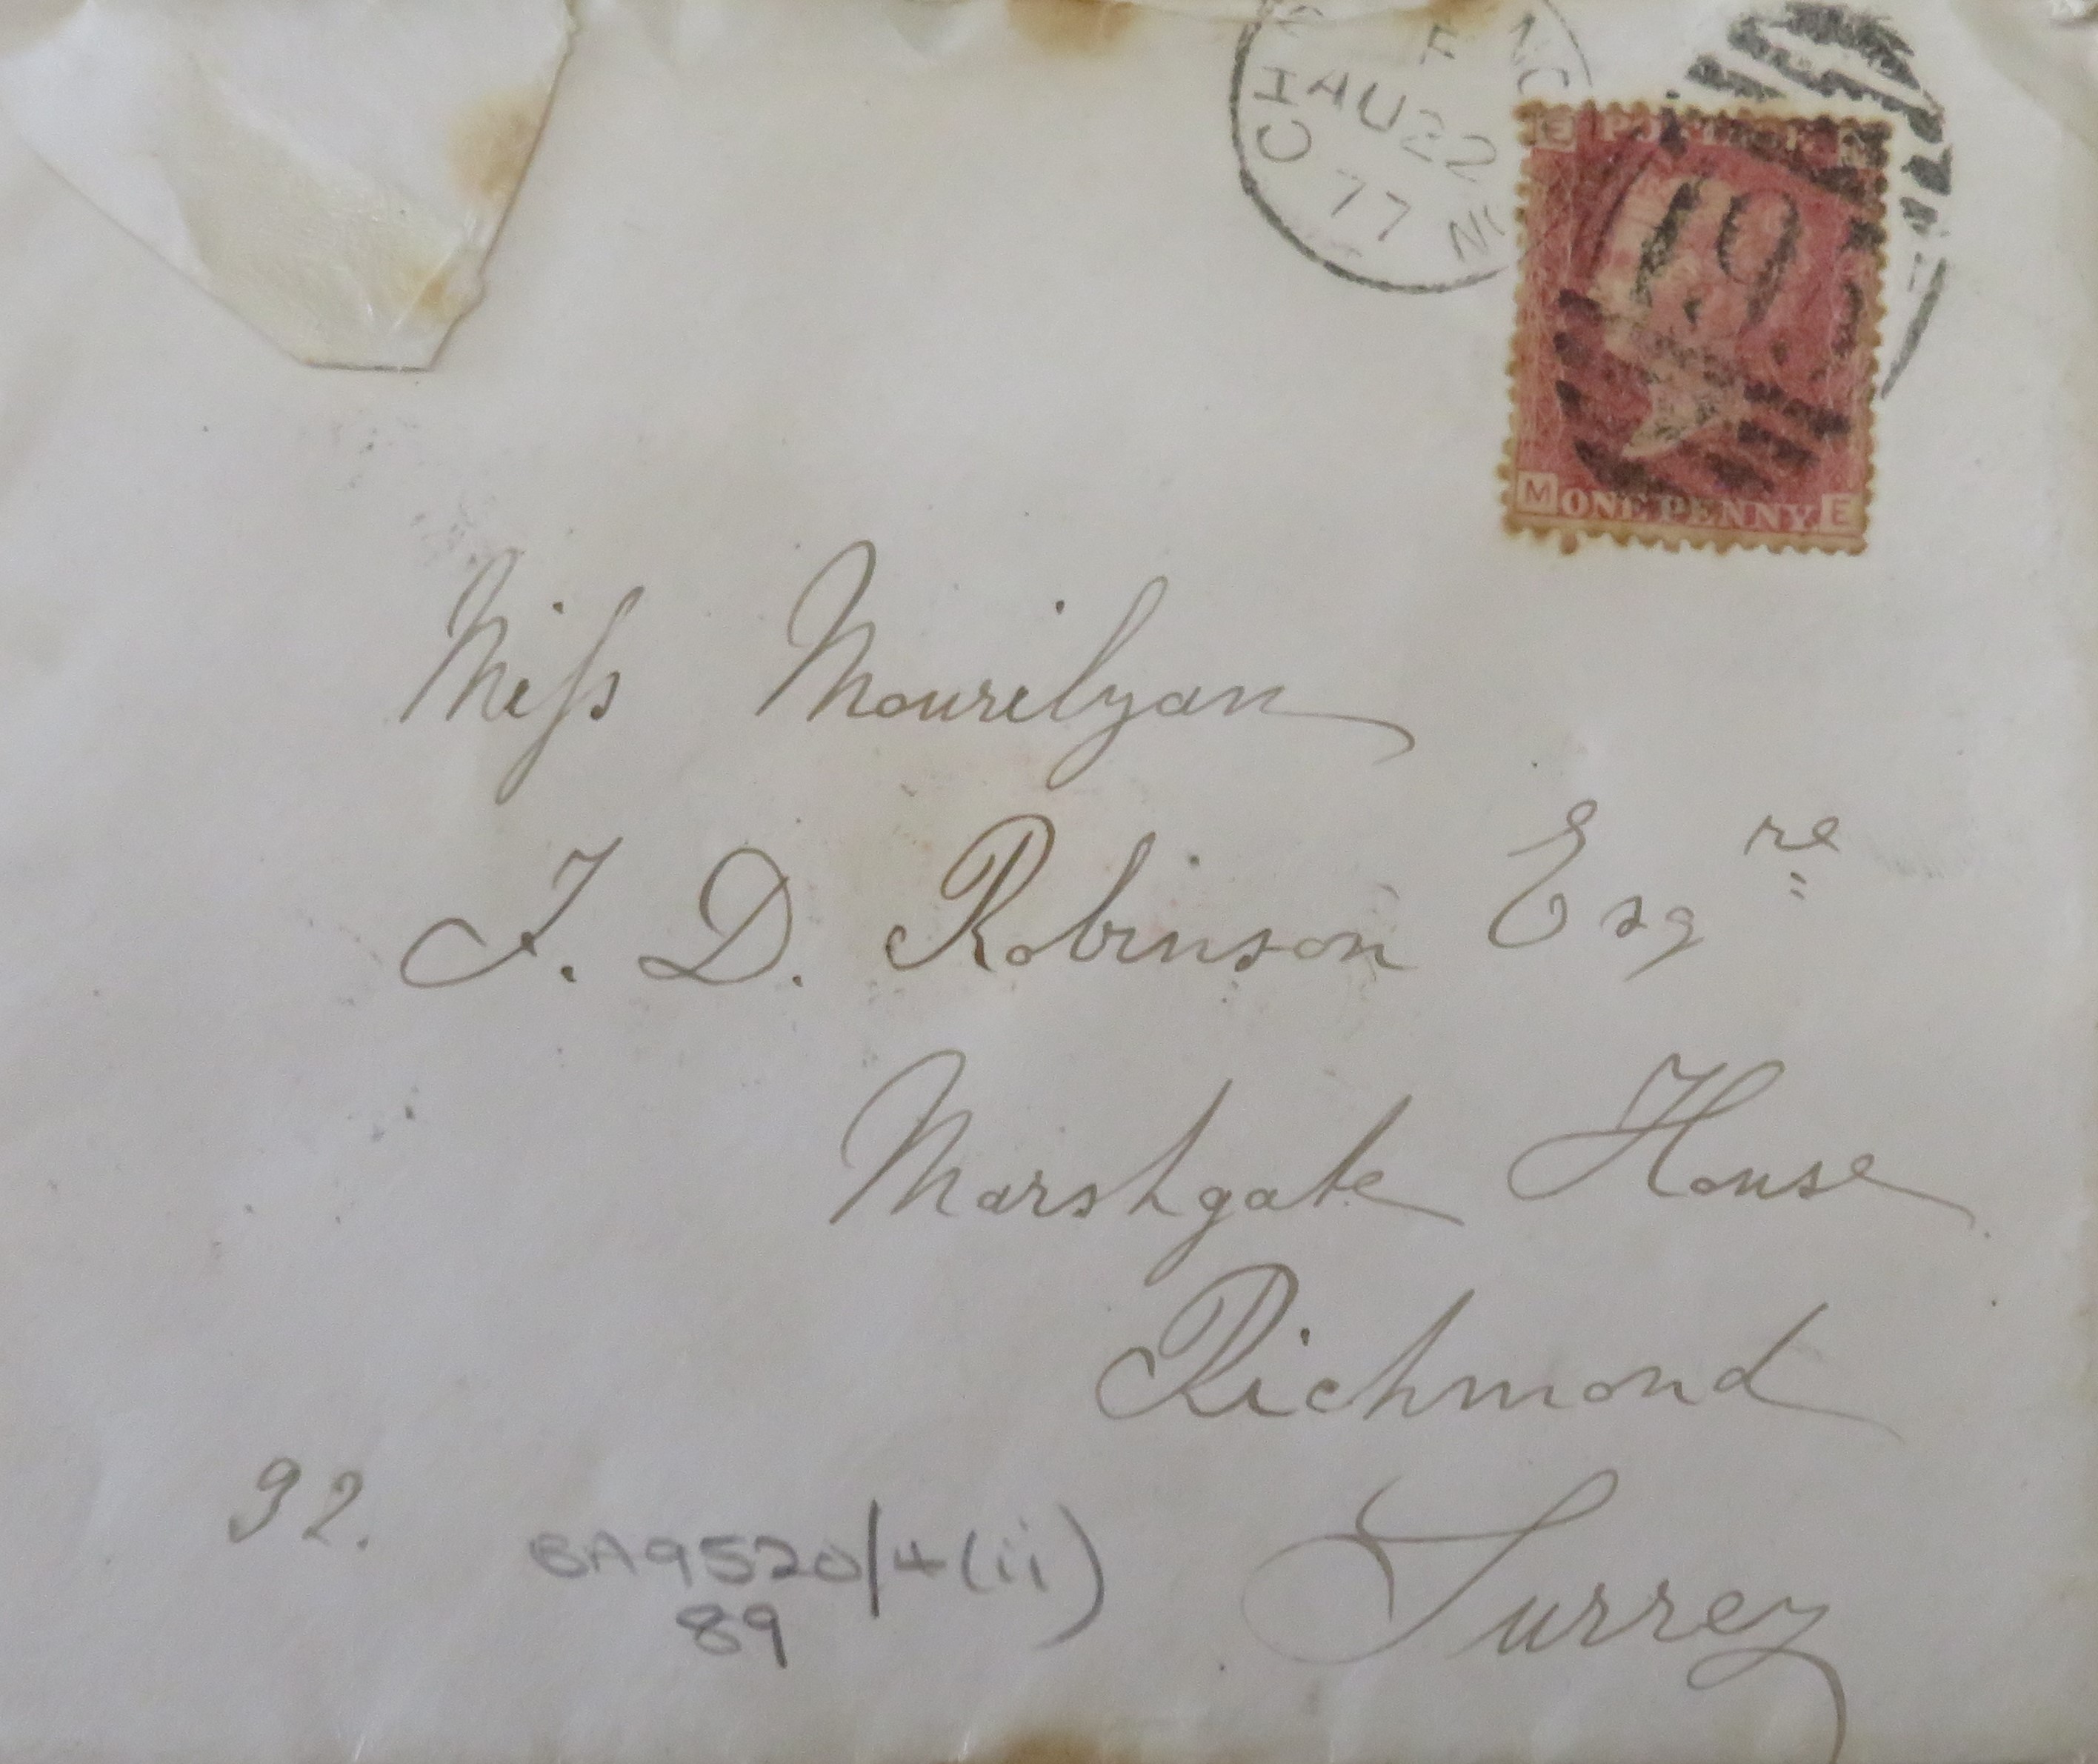 F
AU 22
77
E
ONE PENNY
M E
Miss Mourilyan
T. D. Robinson Esqre
Marshgate House
Richmond
Surrey
92.
BA9520/4(ii)
89